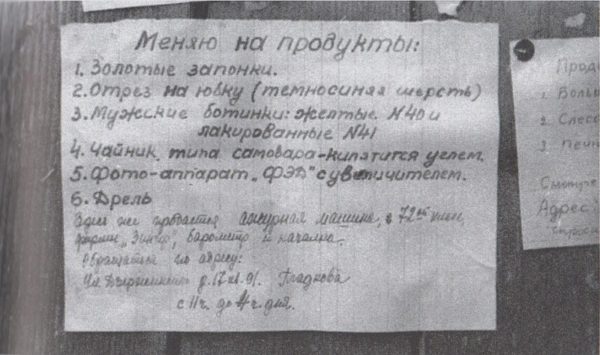 Меняю на продукты:
1. Золотые запонки.
2. Отрез на юбку (темносиняя шерсть)
3. Мужские ботинки: желтые N40 и
лакированные N41
4. Чайник типа самовара-кипятится углем.
5. Фото-аппарат „ФЭД" с увеличителем.
6. Дрель
Здесь же продается ажурная машина,
фирмы „Зингер", барометр и качалка
Обращаться по адресу:
Ул. Дзержинского д. 17 кв. 91. Гладкова
с 11 ч. до 4 ч. дня.
Прода
1. Больш
2. Слесс
3. Печн
Смотре
Адрес: